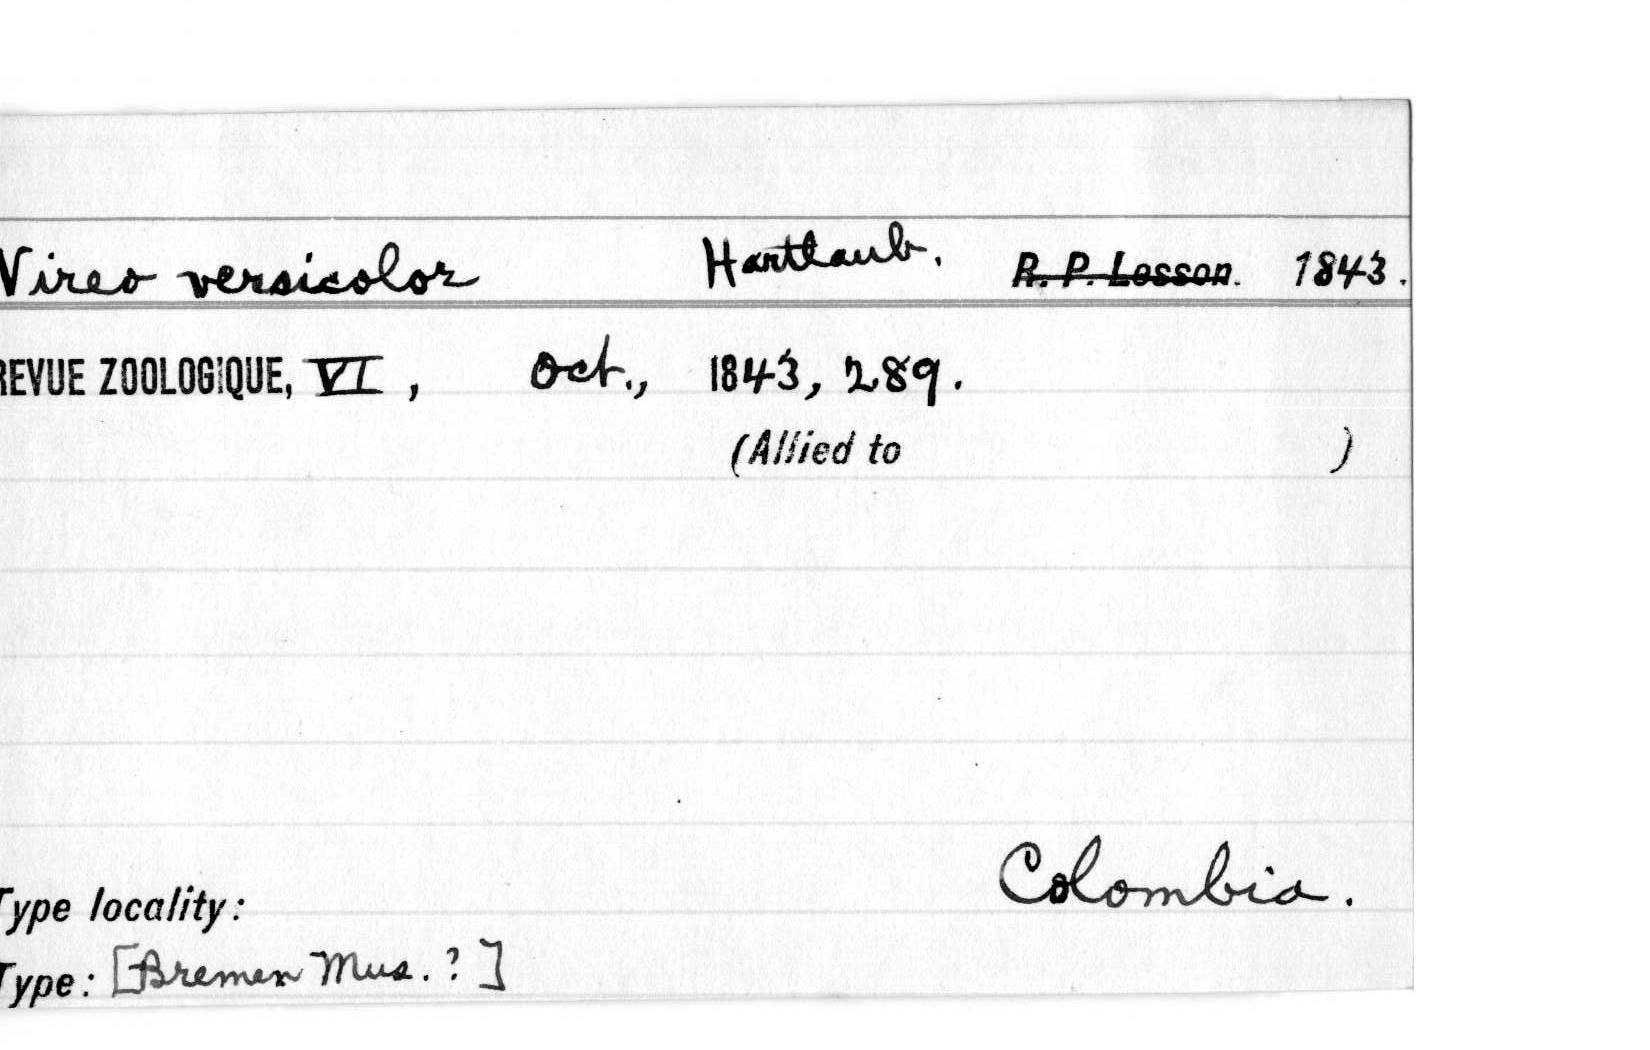 Vireo versicolor Hartlaub. R. P. Lesson. 1843.
REVUE ZOOLOGIQUE, VI, Oct., 1843, 289.
(Allied to )
Colombia.
Type locality:
Type: [Bremen Mus. ?]